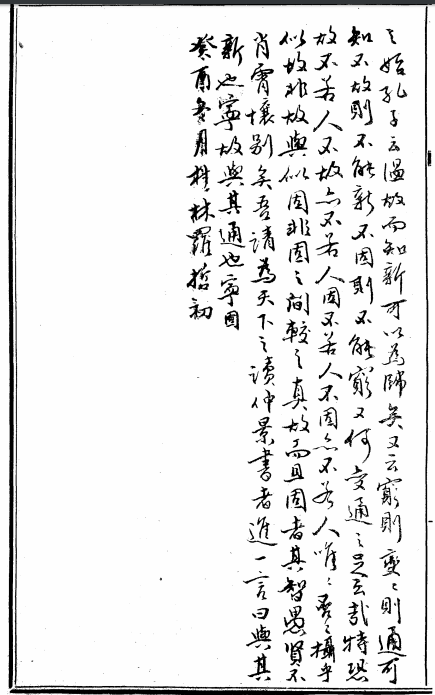 之始孔子云溫故而知新可以為師矣又云窮則變變則通可
知不故則不能新不固則不能窮又何變通之足云哉特恐
故不若人不故亦不若人固不若人不固亦不若人唯唯否否攝乎
似故非故與似固非固之間較之真故而且固者其智愚賢不
肖霄壤別矣吾請為天下之讀仲景書者進一言曰與其
新也寧故與其通也寧固
癸酉冬月桂林羅哲初